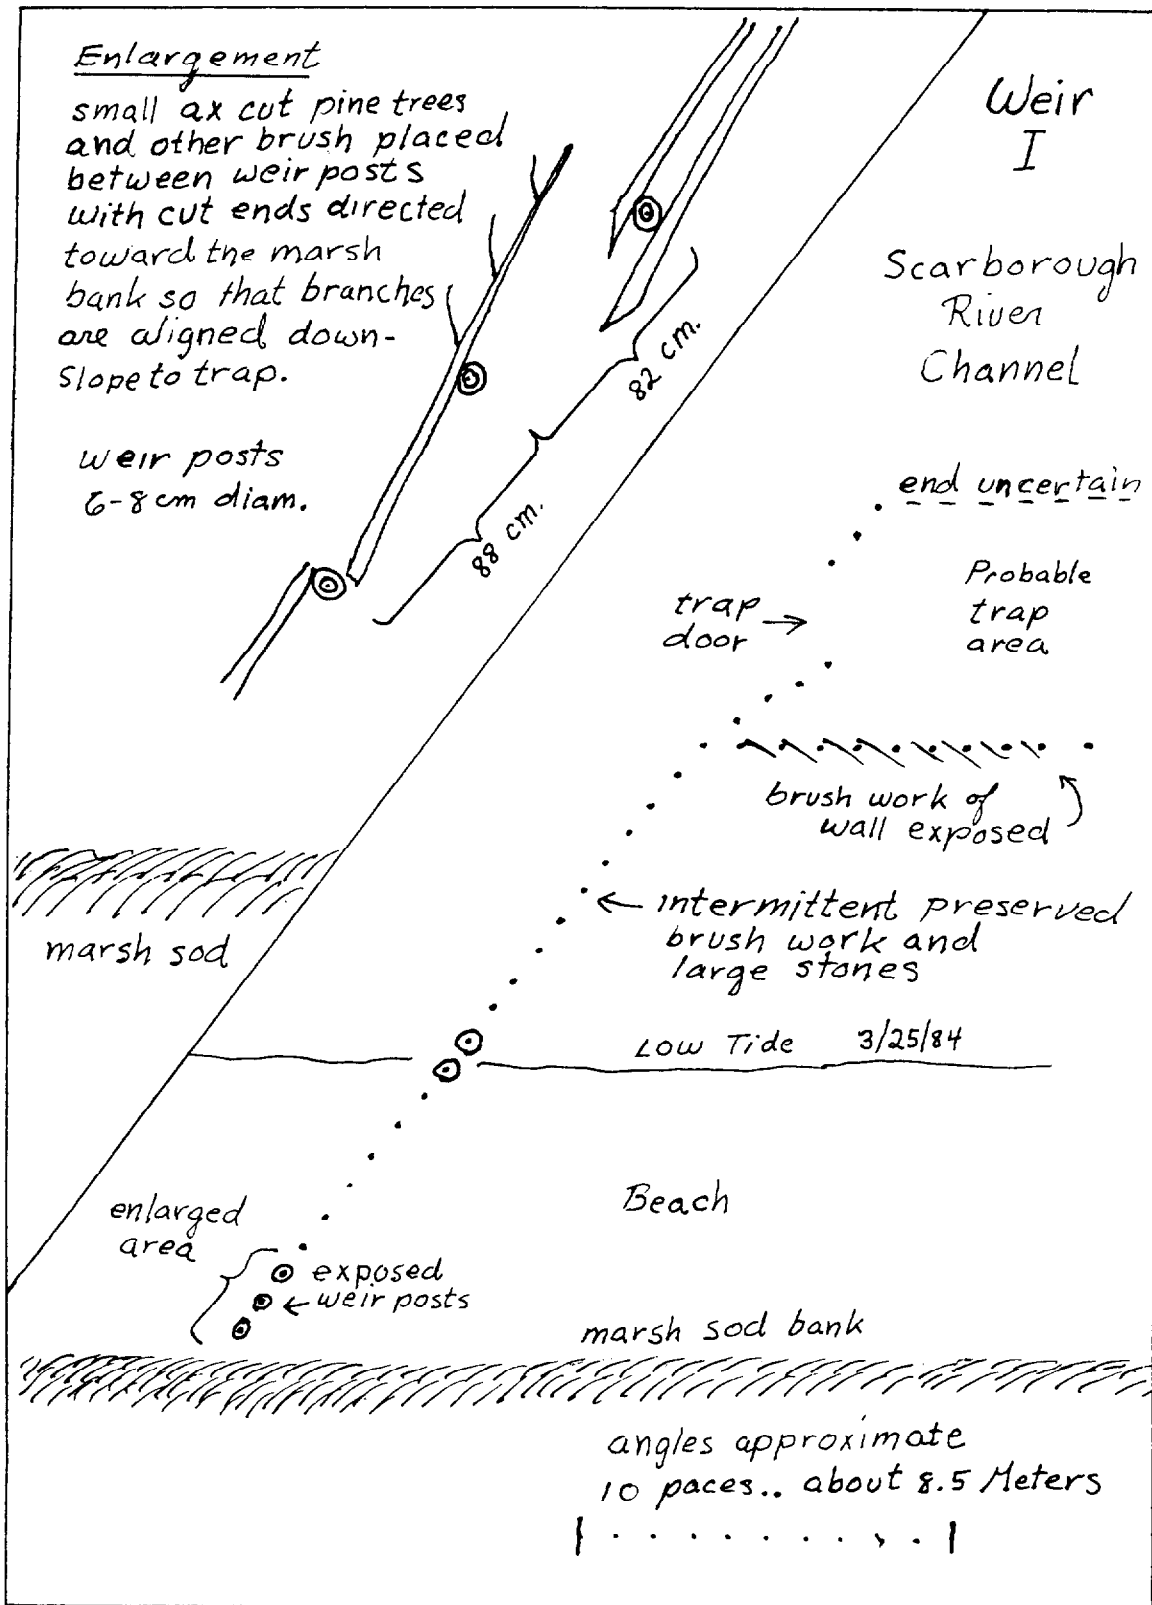 Enlargement
small ax cut pine trees
and other brush placed
between weir posts
with cut ends directed
toward the marsh
bank so that branches
are aligned down-
slope to trap.
weir posts
6-8cm diam.
82 cm.
88 cm.
Weir
I
Scarborough
River
Channel
end uncertain
Probable
trap
area
trap
door
brush work of
wall exposed
intermittent preserved
brush work and
large stones
marsh sod
Low Tide 3/25/84
Beach
enlarged
area
exposed
weir posts
marsh sod bank
angles approximate
10 paces.. about 8.5 Meters